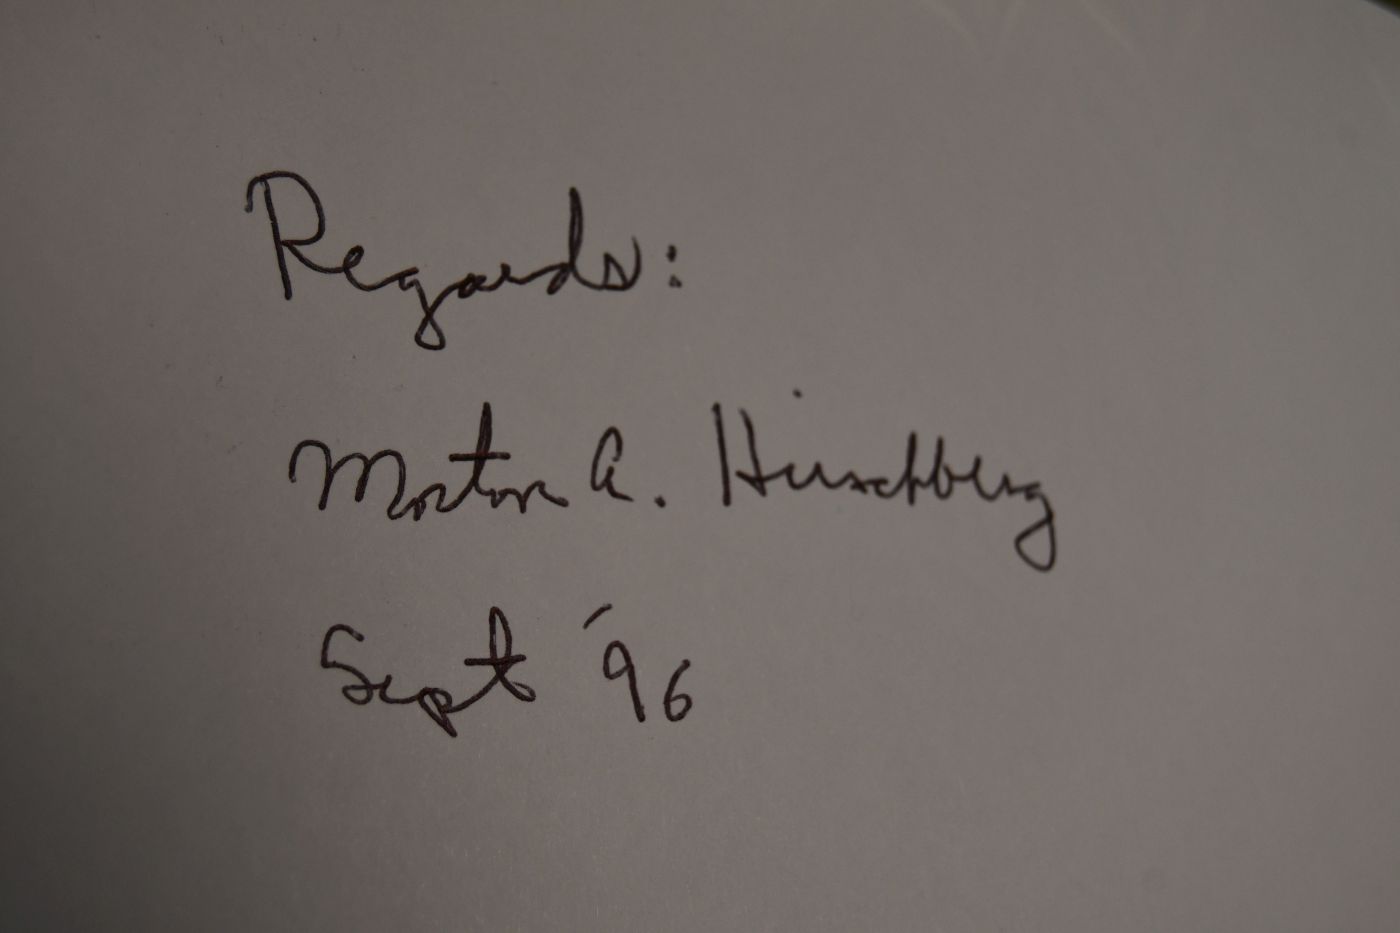 Regards:
Morton A. Hirschberg
Sept '96